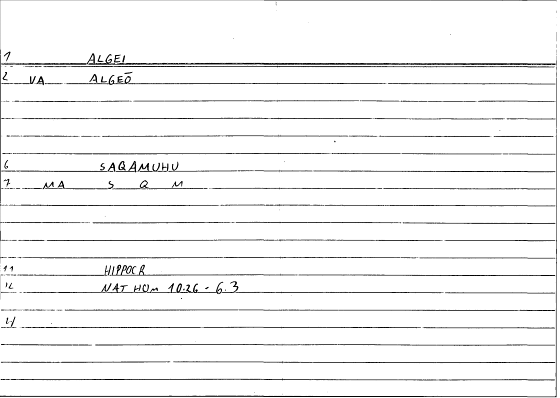 1 ALGEI
2 VA ALGEŌ
6 SAQAMUHU
7 MA S Q M
11 HIPPOCR
12 NAT HOM 10.26 - 6.3